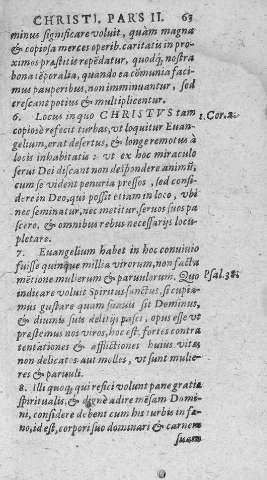 CHRISTI. PARS II. 63
minus significare voluit, quàm magna
& copiosa merces operib. caritatis in pro-
ximos præstitis repẽdatur, quodq́, nostra
bona tẽporalia, quando ea cõmunia faci-
mus pauperibus, non imminuantur, sed
crescant potius & multiplicentur.
6. Locus in quo CHRISTVS tam 1. Cor. 2.
copiosè refecit turbas, vt loquitur Euan-
gelium, erat desertus, & longe remotus à
locis inhabitatis: vt ex hoc miraculo
serui Dei discant non despondere animũ,
cum se vident penuria pressos, sed consi-
dere in Deo, qui possit etiam in loco, vbi
nec seminatur, nec metitur, seruos suos pa-
scere, & omnibus rebus necessarijs locu-
pletare.
7. Euangelium habet in hoc conuiuio
fuisse quinque millia virorum, non facta
mẽtione mulierum & paruulorum. Quo Psal. 38.
indicare voluit Spiritus sanctus, si cupia-
mus gustare quàm suauis sit Dominus,
& diuinis suis delitijs pasci, opus esse vt
præstemus nos viros, hoc est, fortes contra
tentationes & afflictiones huius vitæ,
non delicatos aut molles, vt sunt mulie-
res & paruuli.
8. Illi quoq́, qui refici volunt pane gratiæ
spiritualis, & dignè adire mẽsam Domi-
ni, considere debent cum his turbis in fæ-
no, id est, corpori suo dominari & carnem
suam